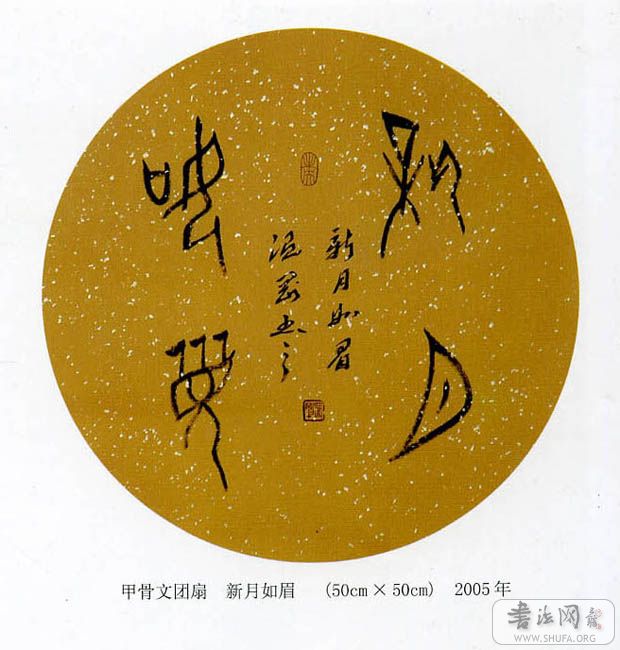 新月
如眉
新月如眉
书之
甲骨文团扇 新月如眉 (50cm × 50cm) 2005年
書法网
WWW.SHUFA.ORG